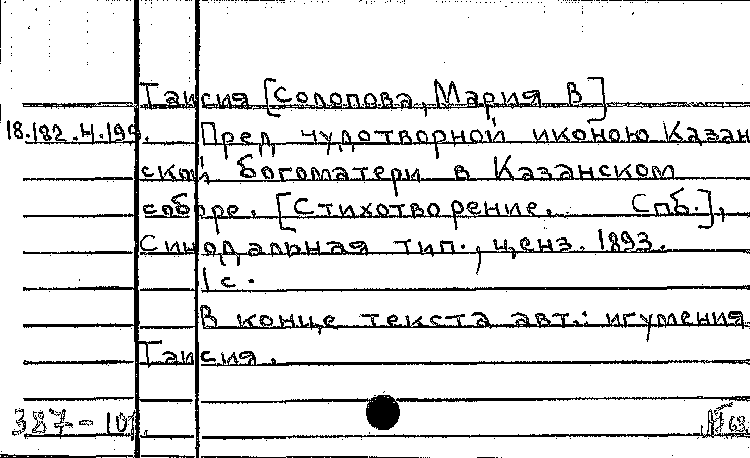 Таисия [Солопова, Мария В]
18.182.4.199. Пред чудотворной иконою Казан
ской богоматери в Казанском
соборе. [Стихотворение. Спб.],
Синодальная тип., ценз. 1893.
1 с.
В конце текста авт.: игумения
Таисия.
387-10